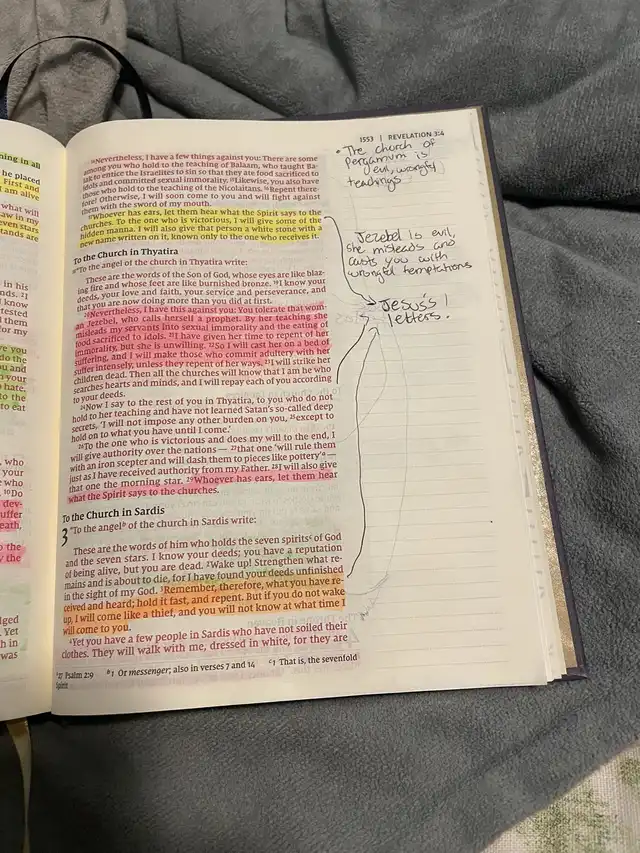 ning in all
he placed
First and
I am alive
what will
aw in my
even stars
tands are
in his
nds.
I know
tested
them
for my
ve you
do the
u and
your
hate,
to the
to eat
, who
your
e who
Do
dev-
uffer
eath.
o the
y the
lged
Yet
h in
was
1553 | REVELATION 3:4
14Nevertheless, I have a few things against you: There are some
among you who hold to the teaching of Balaam, who taught Ba-
lak to entice the Israelites to sin so that they ate food sacrificed to
idols and committed sexual immorality. 15Likewise, you also have
those who hold to the teaching of the Nicolaitans. 16Repent there-
fore! Otherwise, I will soon come to you and will fight against
them with the sword of my mouth.
17Whoever has ears, let them hear what the Spirit says to the
churches. To the one who is victorious, I will give some of the
hidden manna. I will also give that person a white stone with a
new name written on it, known only to the one who receives it.
To the Church in Thyatira
18"To the angel of the church in Thyatira write:
These are the words of the Son of God, whose eyes are like blaz-
ing fire and whose feet are like burnished bronze. 19I know your
deeds, your love and faith, your service and perseverance, and
that you are now doing more than you did at first.
20Nevertheless, I have this against you: You tolerate that wom-
an Jezebel, who calls herself a prophet. By her teaching she
misleads my servants into sexual immorality and the eating of
food sacrificed to idols. 21I have given her time to repent of her
immorality, but she is unwilling. 22So I will cast her on a bed of
suffering, and I will make those who commit adultery with her
suffer intensely, unless they repent of her ways. 23I will strike her
children dead. Then all the churches will know that I am he who
searches hearts and minds, and I will repay each of you according
to your deeds.
24Now I say to the rest of you in Thyatira, to you who do not
hold to her teaching and have not learned Satan's so-called deep
secrets, 'I will not impose any other burden on you, 25except to
hold on to what you have until I come.'
26To the one who is victorious and does my will to the end, I
will give authority over the nations — 27that one 'will rule them
with an iron scepter and will dash them to pieces like pottery'a —
just as I have received authority from my Father. 28I will also give
that one the morning star. 29Whoever has ears, let them hear
what the Spirit says to the churches.
To the Church in Sardis
3 "To the angelb of the church in Sardis write:
These are the words of him who holds the seven spiritsc of God
and the seven stars. I know your deeds; you have a reputation
of being alive, but you are dead. 2Wake up! Strengthen what re-
mains and is about to die, for I have found your deeds unfinished
in the sight of my God. 3Remember, therefore, what you have re-
ceived and heard; hold it fast, and repent. But if you do not wake
up, I will come like a thief, and you will not know at what time I
will come to you.
4Yet you have a few people in Sardis who have not soiled their
clothes. They will walk with me, dressed in white, for they are
a27 Psalm 2:9 b1 Or messenger; also in verses 7 and 14 c1 That is, the sevenfold
Spirit
• The church of
Pergamum is
evil, wrongful
teachings
Jezebel is evil,
she misleads and
casts you with
wrongful temptations
Jesus's
letters.